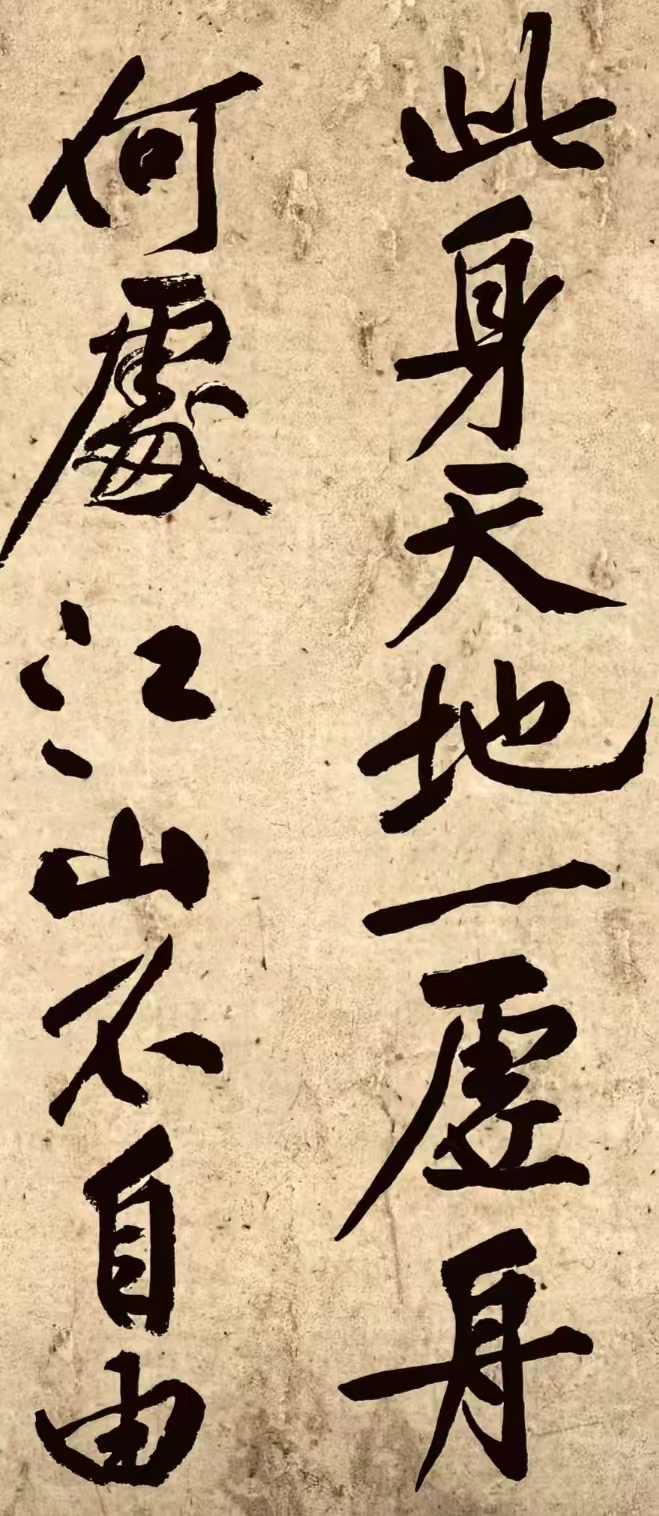 此身天地一虛舟
何處江山不自由